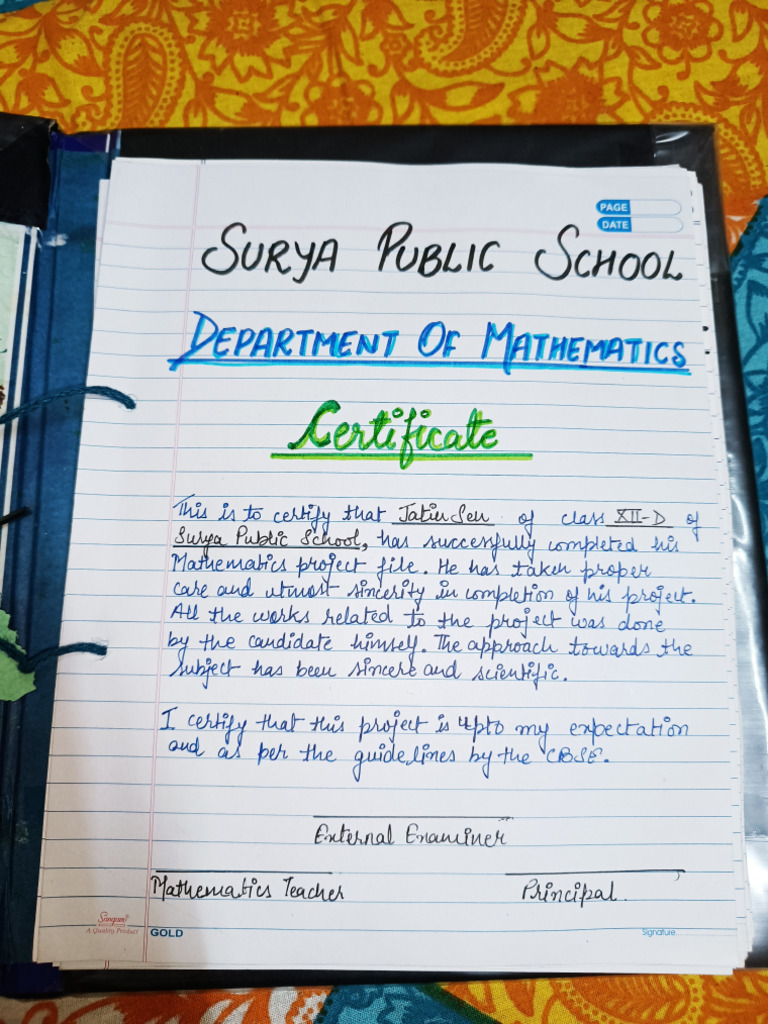 PAGE
DATE
SURYA PUBLIC SCHOOL
DEPARTMENT OF MATHEMATICS
Certificate
This is to certify that Jatin Sen of class XII-D of
Surya Public School, has successfully completed his
Mathematics project file. He has taken proper
care and utmost sincerity in completion of his project.
All the works related to the project was done
by the candidate himself. The approach towards the
subject has been sincere and scientific.
I certify that this project is upto my expectation
and as per the guidelines by the CBSE.
External Examiner
Mathematics Teacher
Principal.
Sangam
A Quality Product
GOLD
Signature